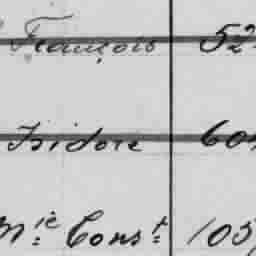 François 52
Isidore 60
M^ie: Cons^t: 105